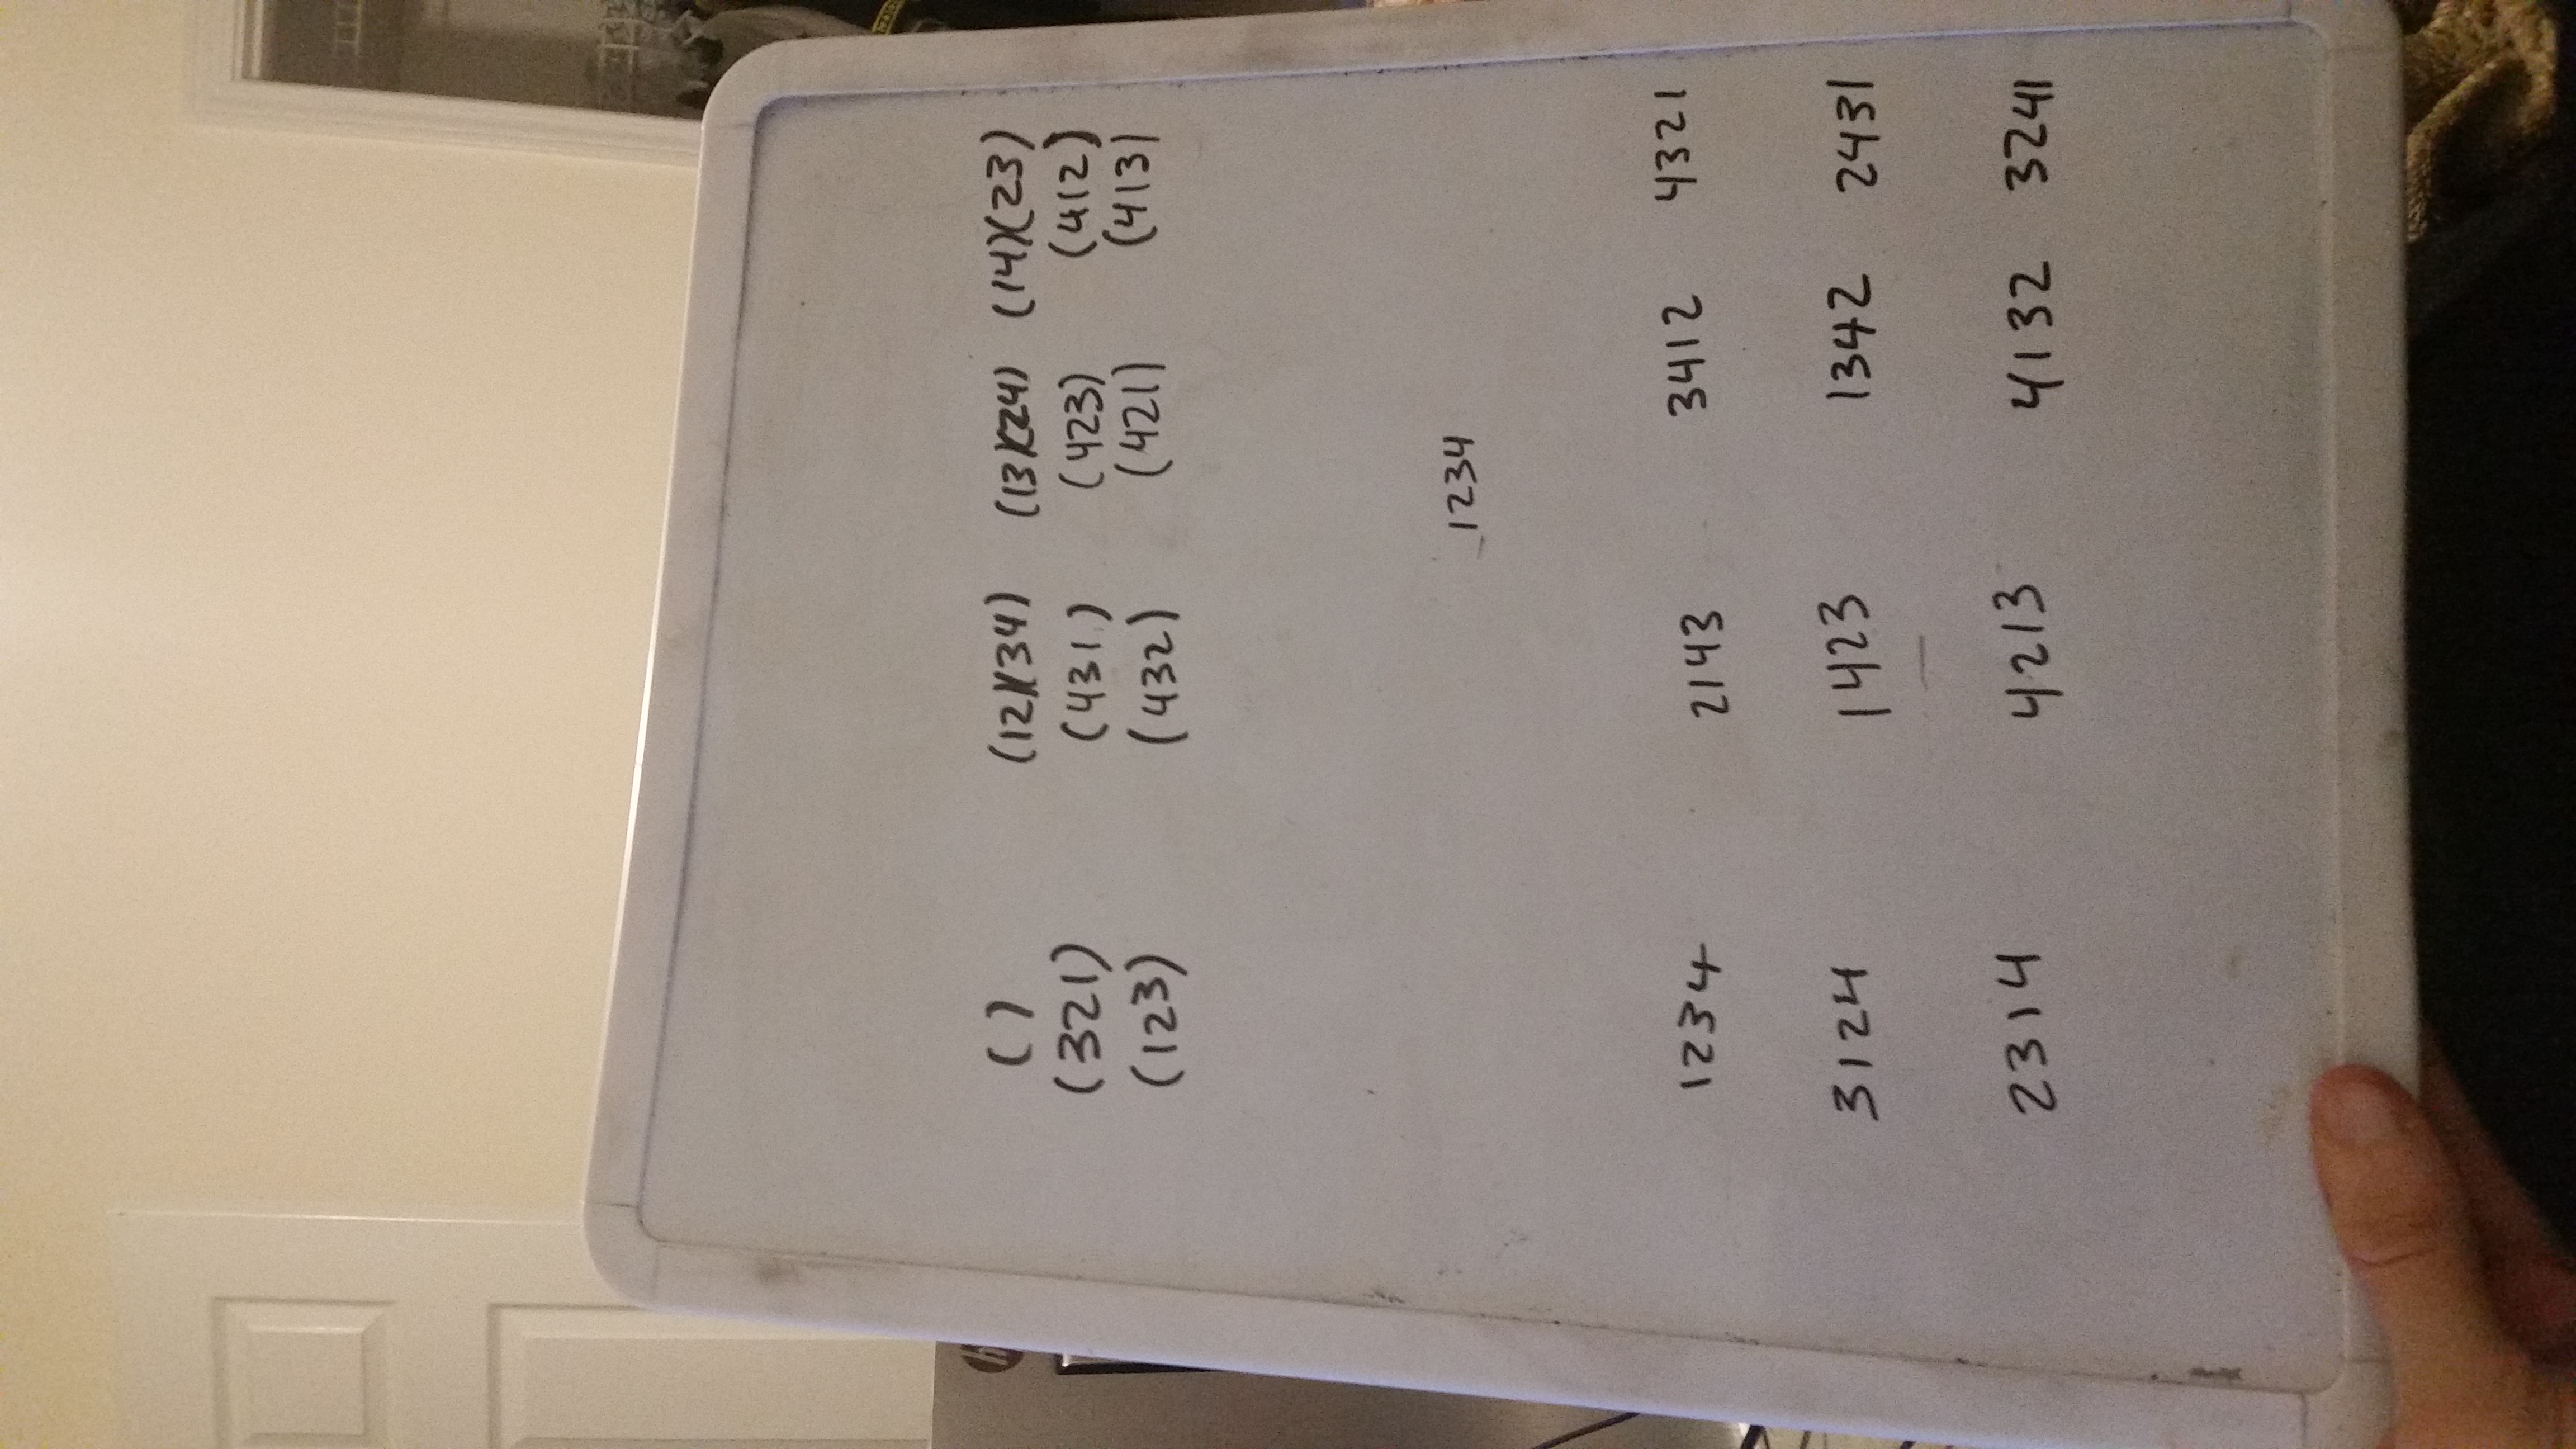 ( ) (12)(34) (13)(24) (14)(23)
(321) (431) (423) (412)
(123) (432) (421) (413)
1234
1234 2143 3412 4321
3124 1423 1342 2431
2314 4213 4132 3241